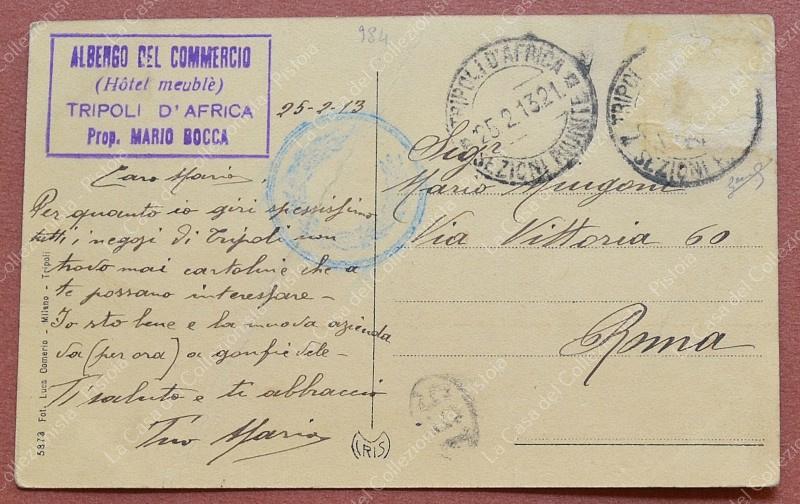 984
ALBERGO DEL COMMERCIO
(Hôtel meublè)
TRIPOLI D'AFRICA
Prop. MARIO BOCCA
25-2-13
TRIPOLI D'AFRICA
25.2.13.21
SEZIONI RIUNITE
TRIPOLI
SEZIONI
Caro Mario,
Per quanto io giri spessissimo
tutti i negozi di Tripoli non
trovo mai cartoline che a
te possano interessare -
Io sto bene e la nuova azienda
va (per ora) a gonfie vele -
Ti saluto e ti abbraccio
Tuo Mario
Sigr
Mario Mungoni
Via Vittoria 60
Roma
5873 Fot. Luca Comerio - Milano - Tripoli
CRIS
La Casa del Collezionista Pistoia